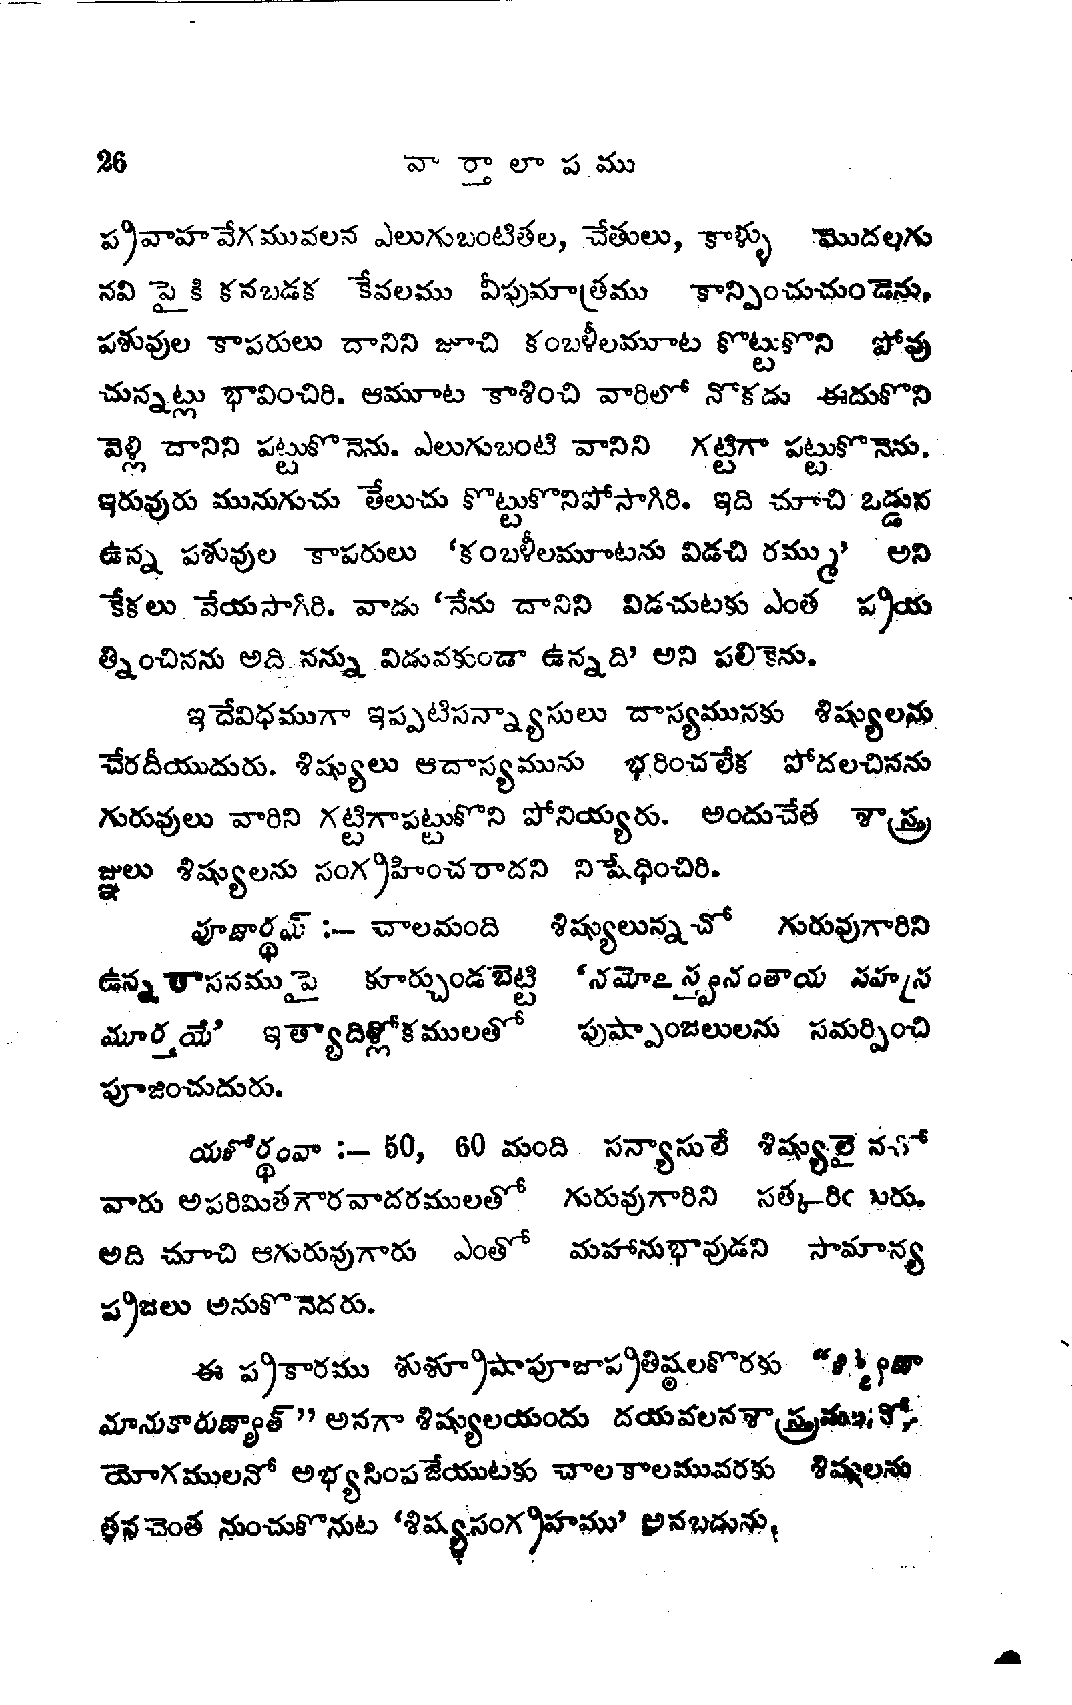 26 వార్తాలాపము
ప్రవాహవేగమువలన ఎలుగుబంటితల, చేతులు, కాళ్ళు మొదలగు
నవి పైకి కనబడక కేవలము వీపుమాత్రము కాన్పించుచుండెను,
పశువుల కాపరులు దానిని జూచి కంబళీలమూట కొట్టుకొని పోవు
చున్నట్లు భావించిరి. ఆమూట కాశించి వారిలో నొకడు ఈదుకొని
వెళ్లి దానిని పట్టుకొనెను. ఎలుగుబంటి వానిని గట్టిగా పట్టుకొనెను.
ఇరువురు మునుగుచు తేలుచు కొట్టుకొనిపోసాగిరి. ఇది చూచి ఒడ్డున
ఉన్న పశువుల కాపరులు ‘కంబళీలమూటను విడచి రమ్ము’ అని
కేకలు వేయసాగిరి. వాడు ‘నేను దానిని విడచుటకు ఎంత ప్రయ
త్నించినను అది నన్ను విడువకుండా ఉన్నది’ అని పలికెను.
ఇదేవిధముగా ఇప్పటిసన్న్యాసులు దాస్యమునకు శిష్యులను
చేరదీయుదురు. శిష్యులు ఆదాస్యమును భరించలేక పోదలచినను
గురువులు వారిని గట్టిగాపట్టుకొని పోనియ్యరు. అందుచేత శాస్త్ర
జ్ఞులు శిష్యులను సంగ్రహించరాదని నిషేధించిరి.
పూజార్థమ్ :— చాలమంది శిష్యులున్నచో గురువుగారిని
ఉన్నతాసనముపై కూర్చుండబెట్టి ‘నమోఽస్త్వనంతాయ సహస్ర
మూర్తయే’ ఇత్యాదిశ్లోకములతో పుష్పాంజలులను సమర్పించి
పూజించుదురు.
యశోర్థంవా :— 50, 60 మంది సన్యాసులే శిష్యులైనచో
వారు అపరిమితగౌరవాదరములతో గురువుగారిని సత్కరింతురు.
అది చూచి ఆగురువుగారు ఎంతో మహానుభావుడని సామాన్య
ప్రజలు అనుకొనెదరు.
ఈ ప్రకారము శుశ్రూషాపూజాప్రతిష్ఠలకొరకు
మానుకారుణ్యాత్” అనగా శిష్యులయందు దయవలనశాస్త్రములతో,
యోగములనో అభ్యసింపజేయుటకు చాలకాలమువరకు శిష్యులను
తనచెంత నుంచుకొనుట ‘శిష్యసంగ్రహము’ అనబడును,